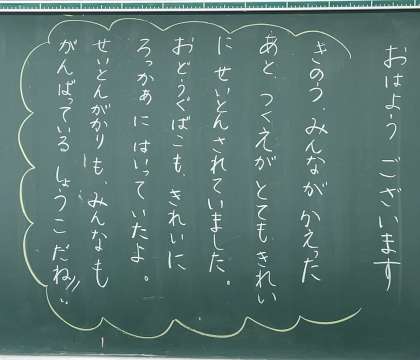 おはよう ございます
きのう、みんなが かえった
あと、つくえが とても きれい
に せいとんされていました。
おどうぐばこも、きれいに
ろっかあに はいっていたよ。
せいとんがかりも、みんなも
がんばっている しょうこだね!!